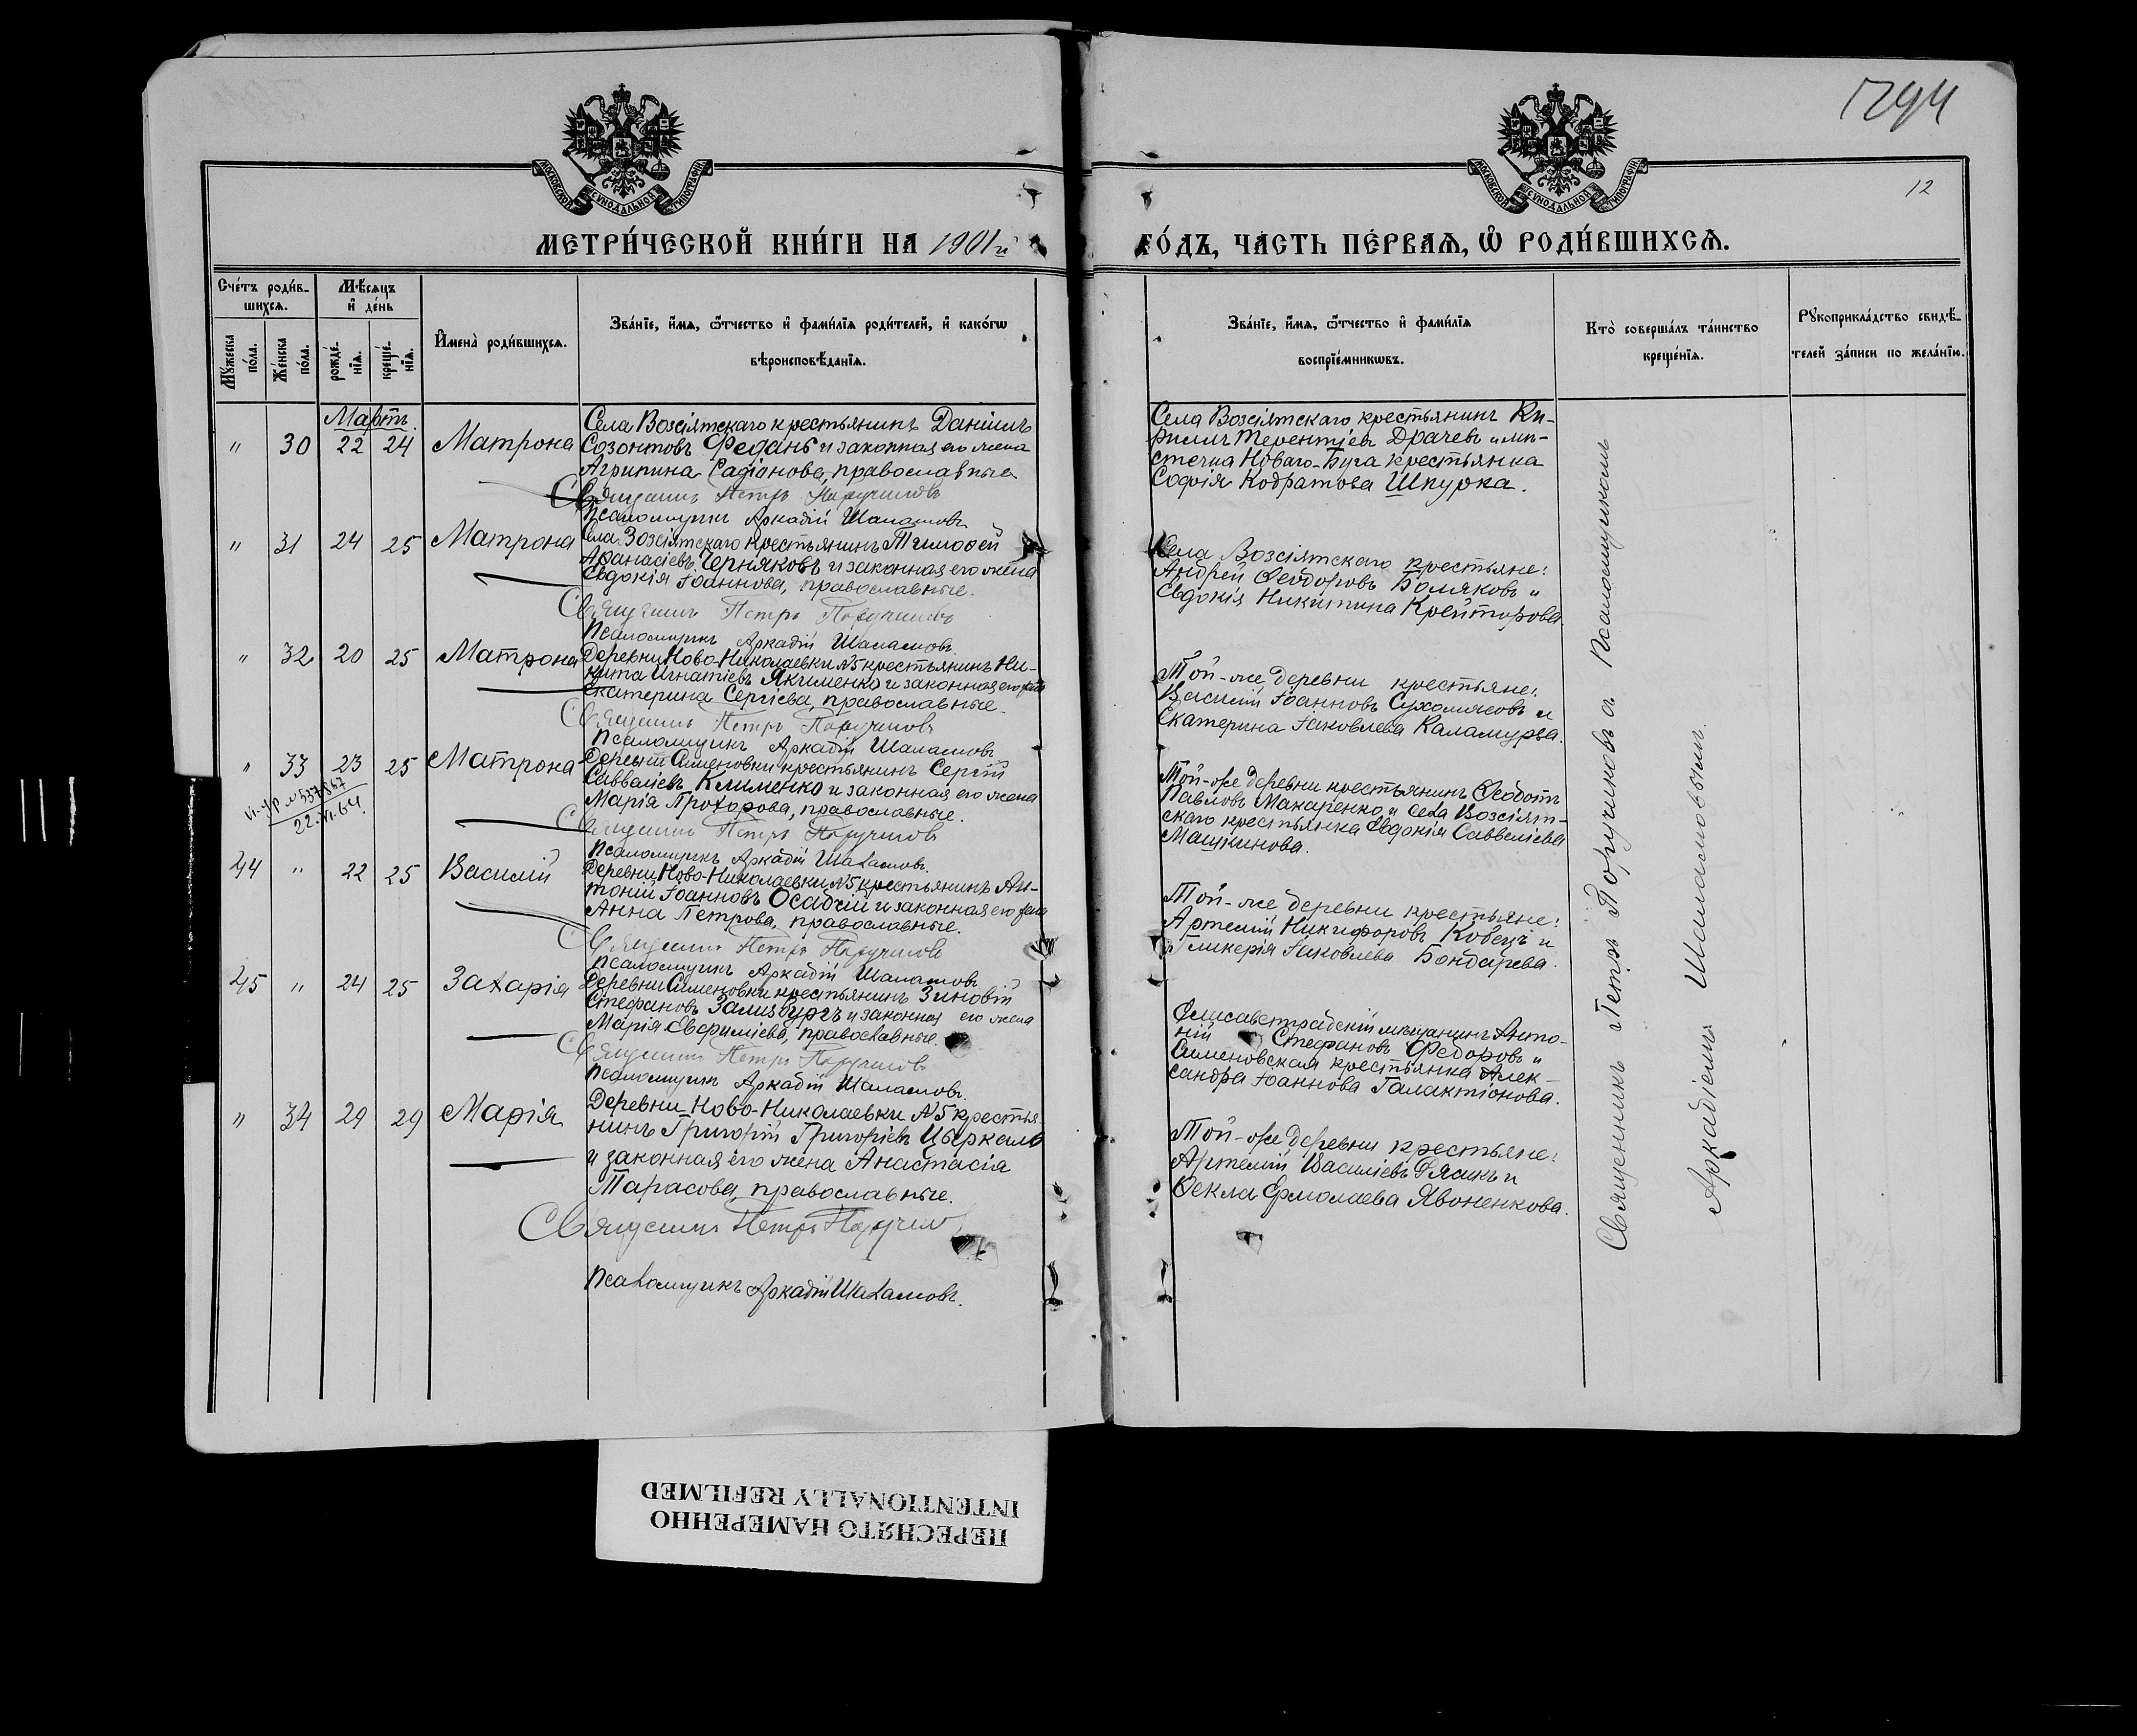 1294
12
МОСКОВСКОЙ СУНОДАЛЬНОЙ ТИПОГРАФІИ
МОСКОВСКОЙ СУНОДАЛЬНОЙ ТИПОГРАФІИ
МЕТРИ́ЧЕСКОЙ КНИ́ГИ НА 1901й ГО́ДЪ, ЧА́СТЬ ПЕ́РВАѦ, Ѡ҆ РОДИ́ВШИХСѦ.
Сче́тъ роди́вшихсѧ.
Мꙋ́жеска по́ла.
Же́нска по́ла.
Мѣ́сѧцъ и҆ де́нь
рожде́нїѧ.
креще́нїѧ.
И҆мена̀ роди́вшихсѧ.
Зва́нїе, и҆́мѧ, ѻ҆́тчество и҆ фами́лїѧ роди́телей, и҆ како́гѡ
вѣроисповѣ́данїѧ.
Зва́нїе, и҆́мѧ, ѻ҆́тчество и҆ фами́лїѧ
воспрїе́мникѡвъ.
Кто̀ соверша́лъ та́инство
креще́нїѧ.
Рꙋкоприкла́дство свидѣ́-
телей за́писи по жела́нїю.
Мартъ.
" 30 22 24 Матрона
Села Возсіятскаго крестьянинъ Даніилъ
Созонтовъ Федань и законная его жена
Агрипина Садіонова, православные
Священникъ Петръ Поручиковъ
Псаломщикъ Аркадій Шаламовъ
Села Возсіятскаго крестьянинъ Ки-
риллъ Терентіевъ Драчевъ и мѣ-
стечка Новаго-Буга крестьянка
Софія Кодратова Шкурка.
" 31 24 25 Матрона
Села Возсіятскаго крестьянинъ Тимоѳей
Аѳанасіевъ Черняковъ и законная его жена
Евдокія Іоаннова, православные.
Священникъ Петръ Поручиковъ
Псаломщикъ Аркадій Шаламовъ.
Села Возсіятскаго крестьяне:
Андрей Ѳеодоровъ Боляковъ и
Евдокія Никитина Крейторова.
" 32 20 25 Матрона
Деревни Ново-Николаевки №5 крестьянинъ Ни-
кита Игнатіевъ Якименко и законная его жена
Екатерина Сергіева, православные.
Священникъ Петръ Поручиковъ
Псаломщикъ Аркадій Шаламовъ
Той-же деревни крестьяне:
Василій Іоанновъ Сухомясовъ и
Екатерина Іаковлева Каламурза.
" 33 23 25 Матрона
22.VI.64.
Деревни Сименовки крестьянинъ Сергій
Савваліевъ Клименко и законная его жена
Марія Прохорова, православные.
Священникъ Петръ Поручиковъ
Псаломщикъ Аркадій Шаламовъ.
Той-же деревни крестьянинъ Ѳеодотъ
Павловъ Макаренко и села Возсіят-
скаго крестьянка Евдокія Савваліева
Машкинова.
44 " 22 25 Василій
Деревни Ново-Николаевки №5 крестьянинъ Ан-
тоній Іоанновъ Осадчій и законная его жена
Анна Петрова, православные.
Священникъ Петръ Поручиковъ
Псаломщикъ Аркадій Шаламовъ
Той-же деревни крестьяне:
Артемій Никифоровъ Ковецъ и
Гликерія Іаковлева Бондарева.
45 " 24 25 Захарія
Деревни Сименовки крестьянинъ Зиновій
Стефановъ Зализбургъ и законная его жена
Марія Евфиміева, православные.
Священникъ Петръ Поручиковъ
Псаломщикъ Аркадій Шаламовъ.
Елисаветградскій мѣщанинъ Анто-
ній Стефановъ Федоровъ и
Сименовская крестьянка Алек-
сандра Іоаннова Галактіонова.
" 34 29 29 Марія
Деревни Ново-Николаевки №5 крестья-
нинъ Григорій Григоріевъ Цверкало
и законная его жена Анастасія
Тарасова, православные.
Священникъ Петръ Поручиковъ
Псаломщикъ Аркадій Шаламовъ.
Той-же деревни крестьяне:
Артемій Василіевъ и
Ѳекла Ермолаева Явоненкова.
Священникъ Петръ Поручиковъ съ Псаломщикомъ
Аркадіемъ Шаламовымъ.
ПЕРЕСНЯТО НАМЕРЕННО
INTENTIONALLY REFILMED